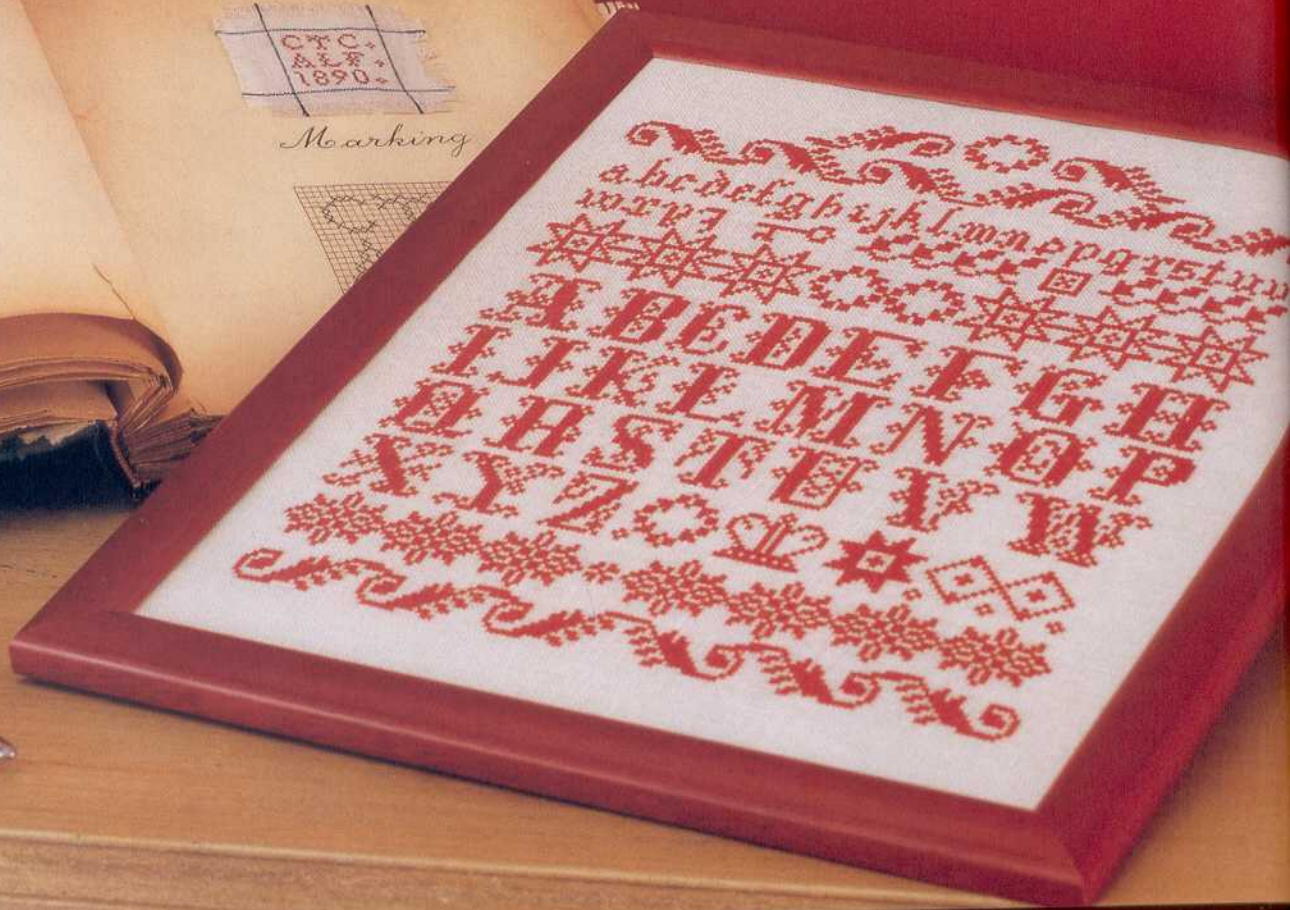 CTC.
ALF.
1890.
Marking
abcdefghijklmnopqrstuv
wxyz
ABCDEFGH
IJKLMNOP
QRSTUVW
XYZ